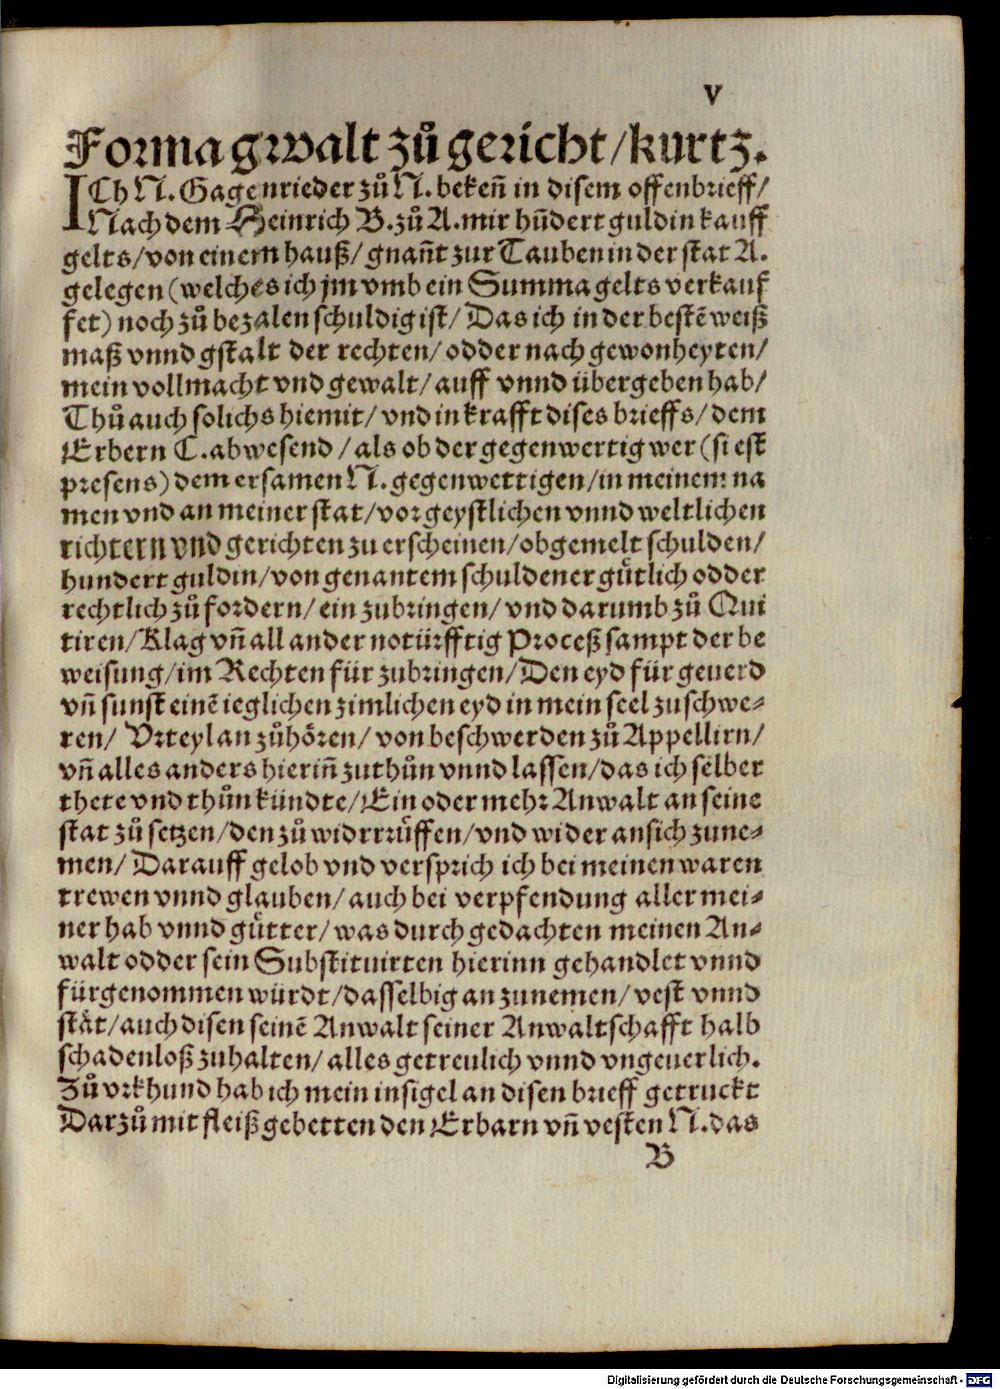 v
Forma gwalt zuͦ gericht/kurtz.
ICh N. Gagenrieder zuͦ N. bekeñ in disem offenbrieff/
Nach dem Heinrich B. zuͦ A. mir hūdert guldin kauff
gelts/von einem hauß/ gnañt zur Tauben in der stat A.
gelegen (welches ich jm vmb ein Summa gelts verkauf
fet) noch zuͦ bezalen schuldig ist/ Das ich in der bestē weiß
maß vnnd gstalt der rechten/ odder nach gewonheyten/
mein vollmacht vnd gewalt/ auff vnnd übergeben hab/
Thuͦ auch solichs hiemit/ vnd in krafft dises brieffs/ dem
Erbern C. abwesend / als ob der gegenwertig wer (si est
presens) dem ersamen N. gegenwettigen/in meinem na
men vnd an meiner stat/vor geystlichen vnnd weltlichen
richtern vnd gerichten zu erscheinen/obgemelt schulden/
hundert guldin/von genantem schuldener guͤtlich odder
rechtlich zuͦ fordern/ ein zubringen/ vnd darumb zuͦ Qui
tiren/ Klag vñ all ander notürfftig Proceß sampt der be
weisung/im Rechten für zubringen/ Den eyd für geuerd
vñ sunst einē ieglichen zimlichen eyd in mein seel zu schwe⸗
ren/ Vrteyl an zuͦhoͤren/ von beschwerden zuͦ Appellirn/
vñ alles anders hieriñ zuthuͦn vnnd lassen/das ich selber
thete vnd thuͦn kündte/ Ein oder mehr Anwalt an seine
stat zuͦ setzen/den zuͦ widrrruͤffen/vnd wider an sich zune⸗
men/ Darauff gelob vnd versprich ich bei meinen waren
trewen vnnd glauben/ auch bei verpfendung aller mei⸗
ner hab vnnd guͤtter/ was durch gedachten meinen An⸗
walt odder sein Substituirten hierinn gehandlet vnnd
fürgenommen würdt/dasselbig an zunemen/ vest vnnd
staͤt/auch disen seinē Anwalt seiner Anwaltschafft halb
schadenloß zuhalten/ alles getreulich vnnd vngeuerlich.
Zuͦ vrkhund hab ich mein insigel an disen brieff getruckt
Darzuͦ mit fleiß gebetten den Erbarn vñ vesten N. das
B
Digitalisierung gefördert durch die Deutsche Forschungsgemeinschaft - DFG